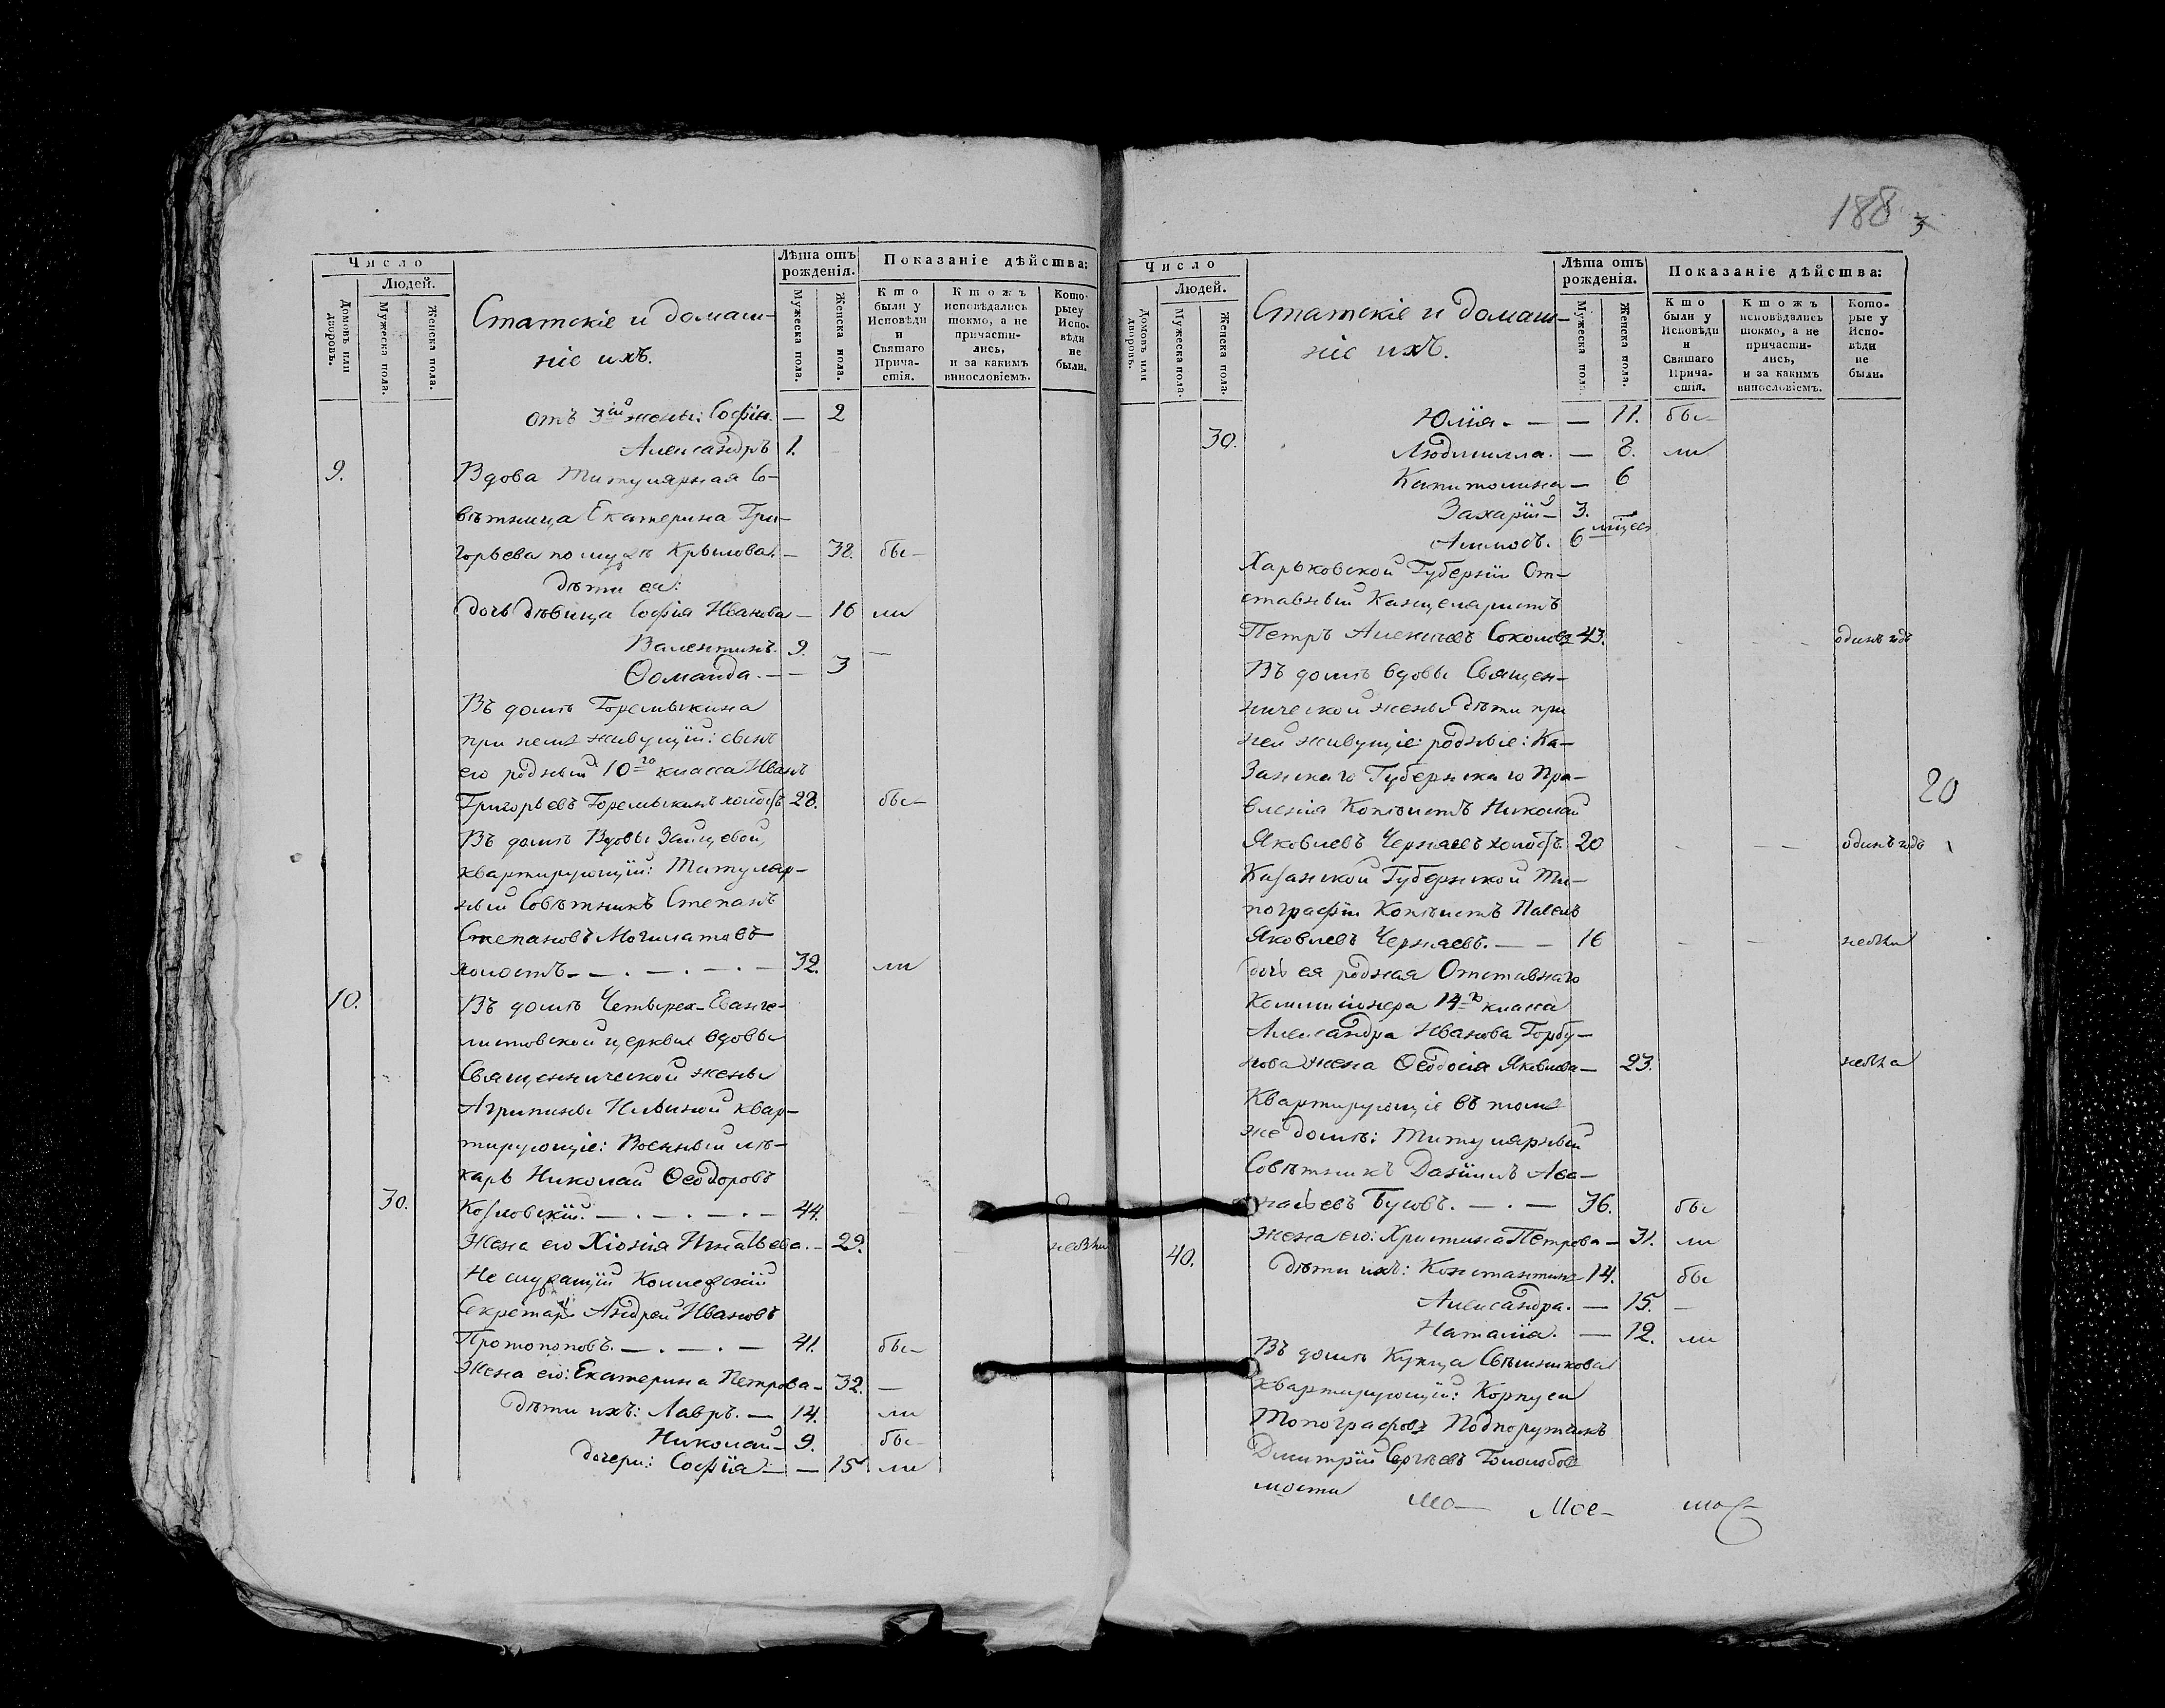 188 3
Число
Людей.
Домовъ или дворовъ.
Мужеска пола.
Женска пола.
Статскіе и домаш-
ніе ихъ.
Лѣта отъ рожденія.
Мужеска пола.
Женска пола.
Показаніе дѣйства:
Кто были у Исповѣди и Святаго Прича-стія.
Ктожъ исповѣдались токмо, а не причасти-лись, и за какимъ винословіемъ.
Кото-рые у Испо-вѣди не были.
отъ 3й жены: Софія. — 2
Александръ 1.
9. Вдова Титулярная Со-
вѣтница Екатерина Гри-
горьева по мужѣ Крылова. — 38. бы-
дѣти ея:
дочь дѣвица Софія Иванова — 16 ли
Валентинъ. 9. —
Ѳомаида. — — 3
Въ домѣ Горемыкина
при немъ живущій: сынъ
его родный 10го класса Иванъ
Григорьевъ Горемыкинъ холостъ 28. бы-
Въ домѣ Вдовы Зайцевой,
квартирующій: Титуляр-
ный Совѣтникъ Степанъ
Степановъ
холостъ - — . — . — . — 32. ли
10. Въ домѣ Четырех-Еванге-
листовской церкви вдовы
Священнической жены
Агрипины Ильиной квар-
тирующіе: Военный лѣ-
карь Николай Ѳеодоровъ
30. Козловскій. — . — . — . — 44.
Жена его Хіонія Игнатьева. — 29.
Не служащій Коллежскій
Секретарь Андрей Ивановъ
Протопоповъ. — . — . — 41. бы-
Жена его: Екатерина Петрова — 32. —
дѣти ихъ: Лавръ. — 14. ли
Николай — 9. бы-
дочери: Софія — — 15 ли
Число
Людей.
Домовъ или дворовъ.
Мужеска пола.
Женска пола.
Статскіе и домаш-
ніе ихъ.
Лѣта отъ рожденія.
Мужеска пола.
Женска пола.
Показаніе дѣйства:
Кто были у Исповѣди и Святаго Прича-стія.
Ктожъ исповѣдались токмо, а не причасти-лись, и за какимъ винословіемъ.
Кото-рые у Испо-вѣди не были.
Юлія. — — — 11. бы-
30. Людмилла. — 8. ли
Капитолина — 6
Захарій — 3.
6
Харьковской Губерніи От-
ставный Канцеляристъ
Петръ Алексѣевъ Соколовъ 43. одинъ годъ
Въ домѣ вдовы Священ-
нической жены дѣти при
ней живущіе: родные: Ка-
занскаго Губернскаго Пра-
20
вленія Копіистъ Николай
Яковлевъ Черняевъ холостъ. 20 одинъ годъ
Казанской Губернской Ти-
пографіи Копіистъ Павелъ
Яковлевъ Черняевъ. — — 16
дочь ея родная Отставнаго
Коммиссіонера 14го класса
Александра Иванова Горбу-
нова жена Ѳеодосія Яковлева — 23.
Квартирующіе въ томъ
же домѣ: Титулярный
Совѣтникъ Даніилъ Аѳа-
насьевъ Бусовъ. — . — 36. бы
Жена его: Христина Петрова — 31. ли
40. дѣти ихъ: Константинъ 14. бы
Александра. — 15. —
Наталія. — 12. ли
Въ домѣ Купца Свѣшникова
квартирующій: Корпуса
Топографовъ Подпоручикъ
Дмитрій Сергѣевъ